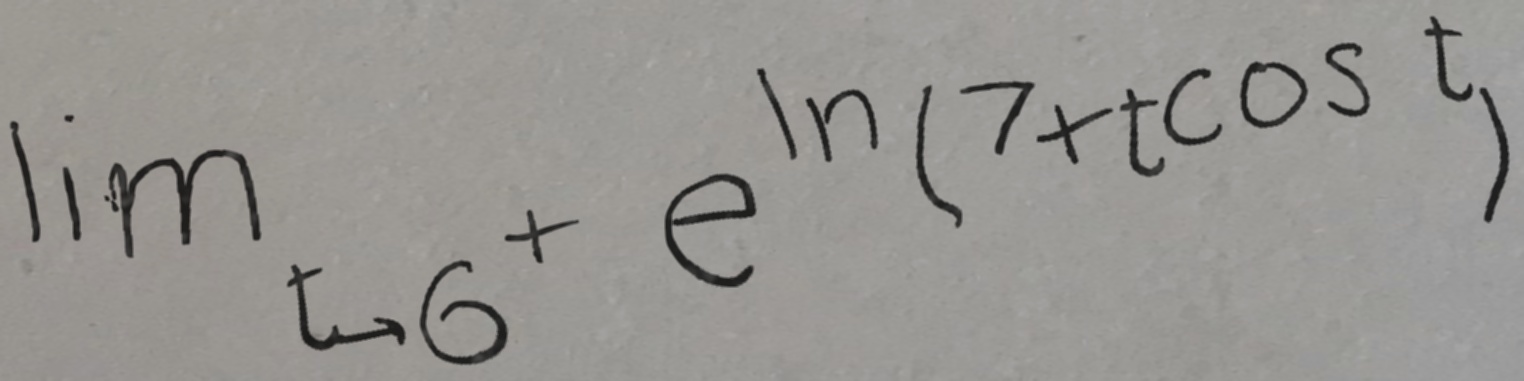 lim t→6⁺ e^ln(7+tcos t)